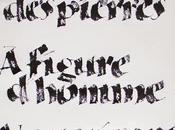 des pierres
A figure
d'homme